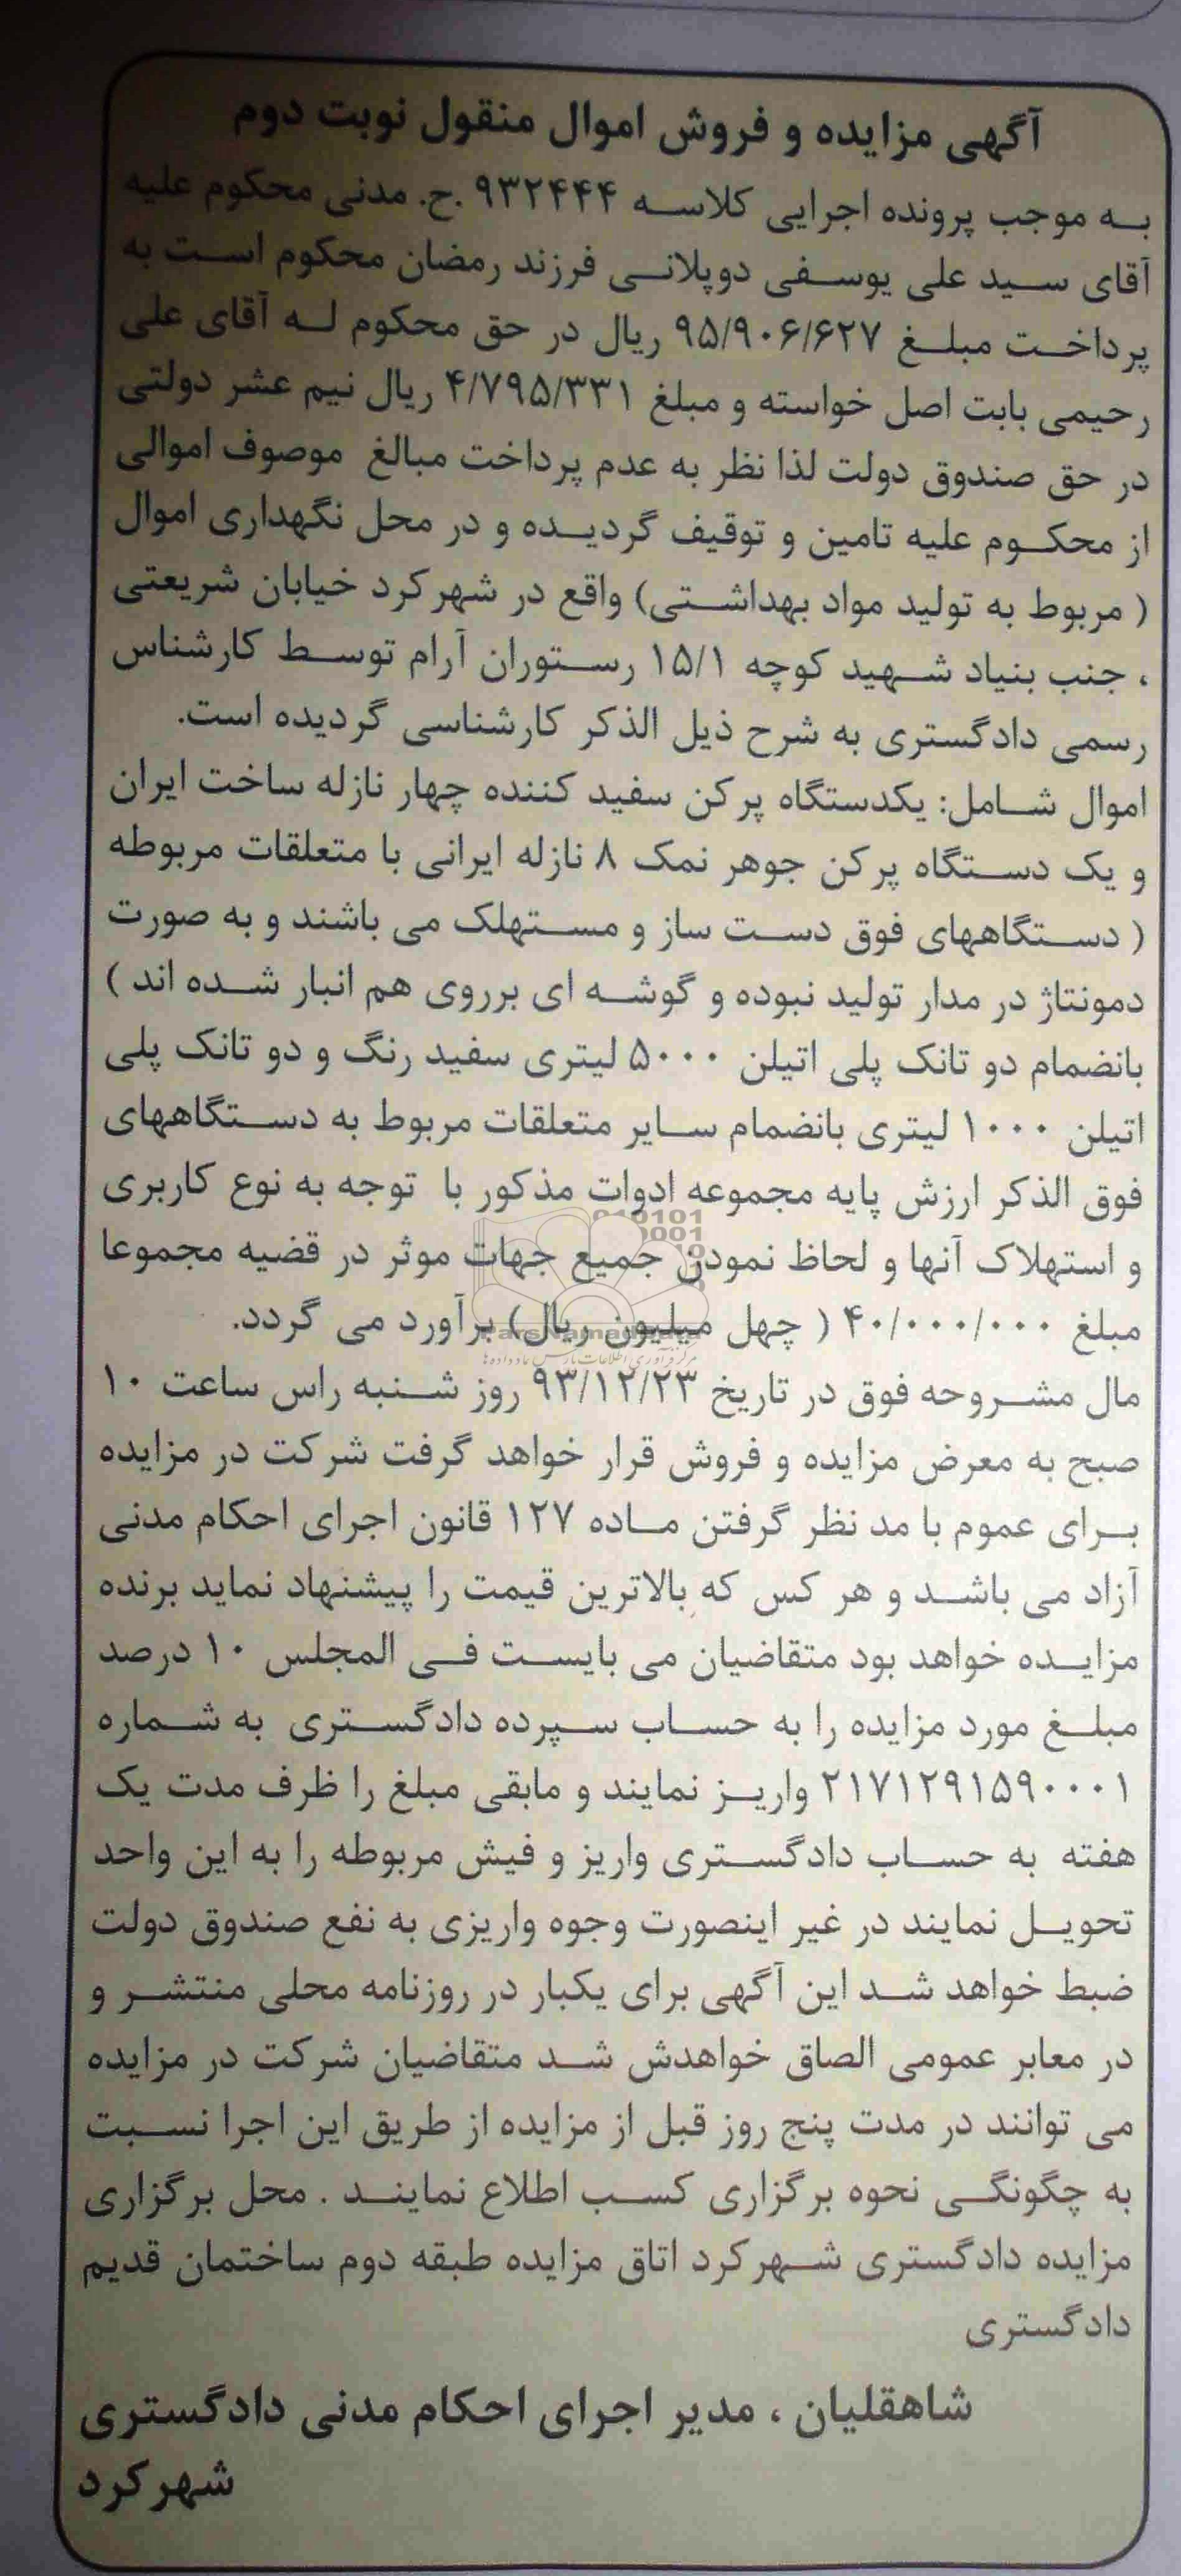 آگهی مزایده و فروش اموال منقول نوبت دوم
به موجب پرونده اجرایی کلاسه ۹۳۲۴۴۴ .ح. مدنی محکوم علیه
آقای سید علی یوسفی دوپلانی فرزند رمضان محکوم است به
پرداخت مبلغ ۹۵/۹۰۶/۶۲۷ ریال در حق محکوم له آقای علی
رحیمی بابت اصل خواسته و مبلغ ۴/۷۹۵/۳۳۱ ریال نیم عشر دولتی
در حق صندوق دولت لذا نظر به عدم پرداخت مبالغ موصوف اموالی
از محکوم علیه تامین و توقیف گردیده و در محل نگهداری اموال
( مربوط به تولید مواد بهداشتی) واقع در شهرکرد خیابان شریعتی
، جنب بنیاد شهید کوچه ۱۵/۱ رستوران آرام توسط کارشناس
رسمی دادگستری به شرح ذیل الذکر کارشناسی گردیده است.
اموال شامل: یکدستگاه پرکن سفید کننده چهار نازله ساخت ایران
و یک دستگاه پرکن جوهر نمک ۸ نازله ایرانی با متعلقات مربوطه
( دستگاههای فوق دست ساز و مستهلک می باشند و به صورت
دمونتاژ در مدار تولید نبوده و گوشه ای برروی هم انبار شده اند )
بانضمام دو تانک پلی اتیلن ۵۰۰۰ لیتری سفید رنگ و دو تانک پلی
اتیلن ۱۰۰۰ لیتری بانضمام سایر متعلقات مربوط به دستگاههای
فوق الذکر ارزش پایه مجموعه ادوات مذکور با توجه به نوع کاربری
و استهلاک آنها و لحاظ نمودن جمیع جهات موثر در قضیه مجموعا
مبلغ ۴۰/۰۰۰/۰۰۰ ( چهل میلیون ریال) برآورد می گردد.
مال مشروحه فوق در تاریخ ۹۳/۱۲/۲۳ روز شنبه راس ساعت ۱۰
صبح به معرض مزایده و فروش قرار خواهد گرفت شرکت در مزایده
برای عموم با مد نظر گرفتن ماده ۱۲۷ قانون اجرای احکام مدنی
آزاد می باشد و هر کس که بالاترین قیمت را پیشنهاد نماید برنده
مزایده خواهد بود متقاضیان می بایست فی المجلس ۱۰ درصد
مبلغ مورد مزایده را به حساب سپرده دادگستری به شماره
۲۱۷۱۲۹۱۵۹۰۰۰۱ واریز نمایند و مابقی مبلغ را ظرف مدت یک
هفته به حساب دادگستری واریز و فیش مربوطه را به این واحد
تحویل نمایند در غیر اینصورت وجوه واریزی به نفع صندوق دولت
ضبط خواهد شد این آگهی برای یکبار در روزنامه محلی منتشر و
در معابر عمومی الصاق خواهدش شد متقاضیان شرکت در مزایده
می توانند در مدت پنج روز قبل از مزایده از طریق این اجرا نسبت
به چگونگی نحوه برگزاری کسب اطلاع نمایند . محل برگزاری
مزایده دادگستری شهرکرد اتاق مزایده طبقه دوم ساختمان قدیم
دادگستری
شاهقلیان ، مدیر اجرای احکام مدنی دادگستری
شهرکرد